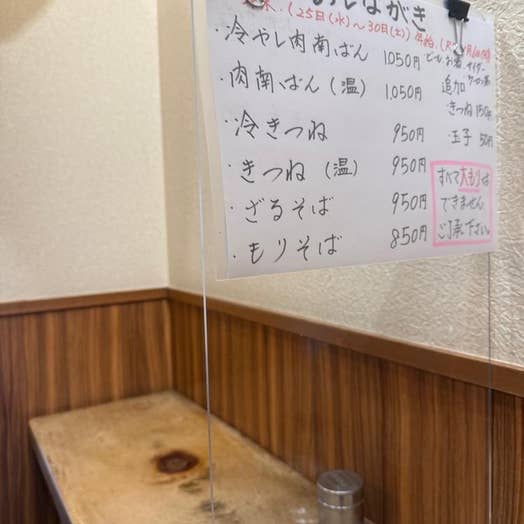 おしながき
末.(25日(水)～30日(土)) 年始.
・冷やし肉南ばん 1050円
・肉南ばん(温) 1,050円
・冷きつね 950円
・きつね(温) 950円
・ざるそば 950円
・もりそば 850円
ビール、お酒、サイダー
追加
・きつね 150円
・玉子 50円
すべて大もりは
できません
ご了承下さい。